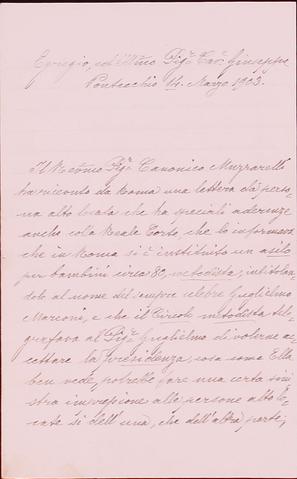 Egregio, ed Ill.mo Sig.r Cav.r Giuseppe
Pontecchio 14. Marzo 1903.
Il R.mo Sig.r Canonico Muzzarelli
ha ricevuto da Roma una lettera da perso-
na alto locata che ha speciali aderenze
anche colà Reale Corte, che lo informava
che in Roma si è instituito un asilo
per bambini circa 80, metodista, intitolan-
dolo al nome del sempre celebre Guglielmo
Marconi, e che il Circolo metodista tele-
grafava al Sig.r Guglielmo di volerne ac-
cettare la presidenza, cosa come Ella
ben vede, potrebbe fare una certa sini-
stra impressione alle persone alto lo-
cate sì dell'una, che dell'altra parte;